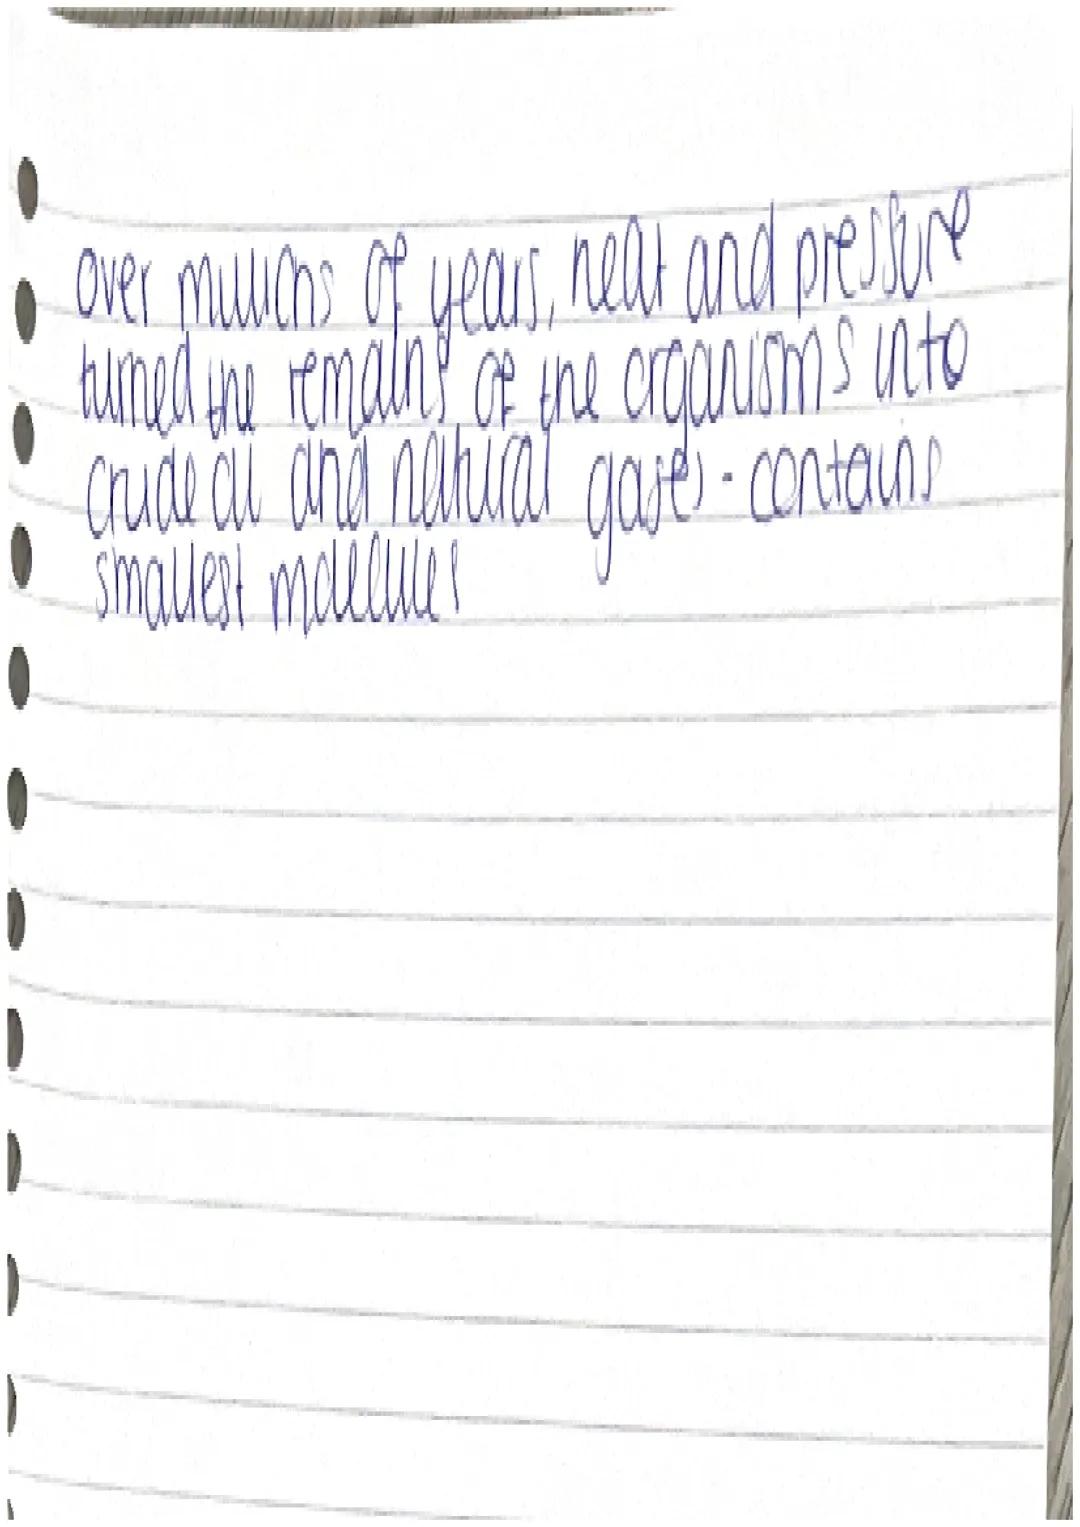 over millions of years, heat and pressure
turned the remains of the organisms into
crude oil and natural gases - contains
smallest molecules